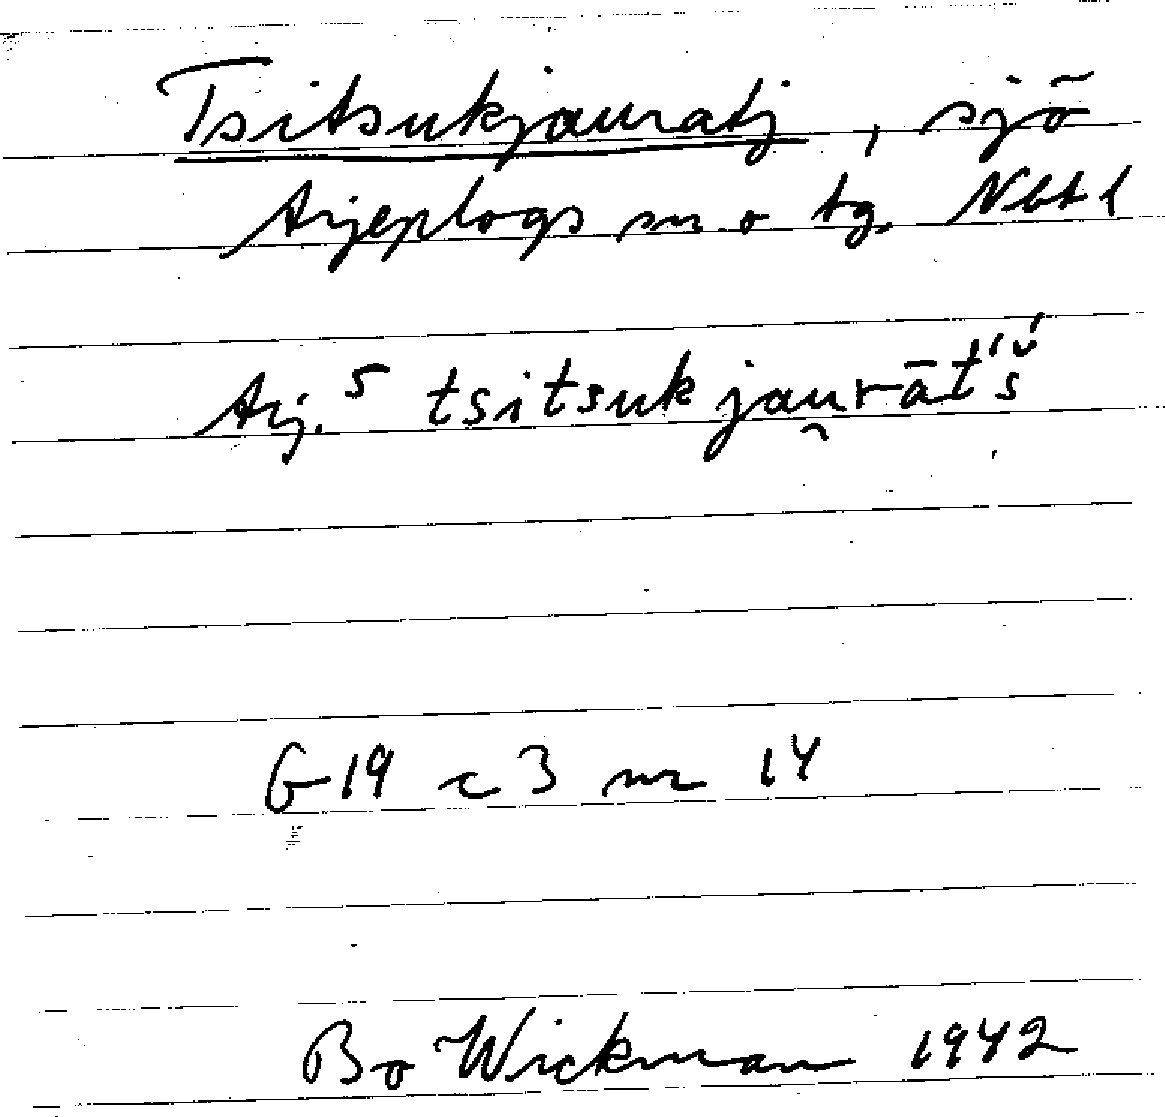 Tsitsukjauratj, sjö
Arjeplogs sn o tg. Nbt l
Arj. 5 tsitsuk jau̯rāt́š́
G 19 c 3 nr 14
Bo Wickman 1942